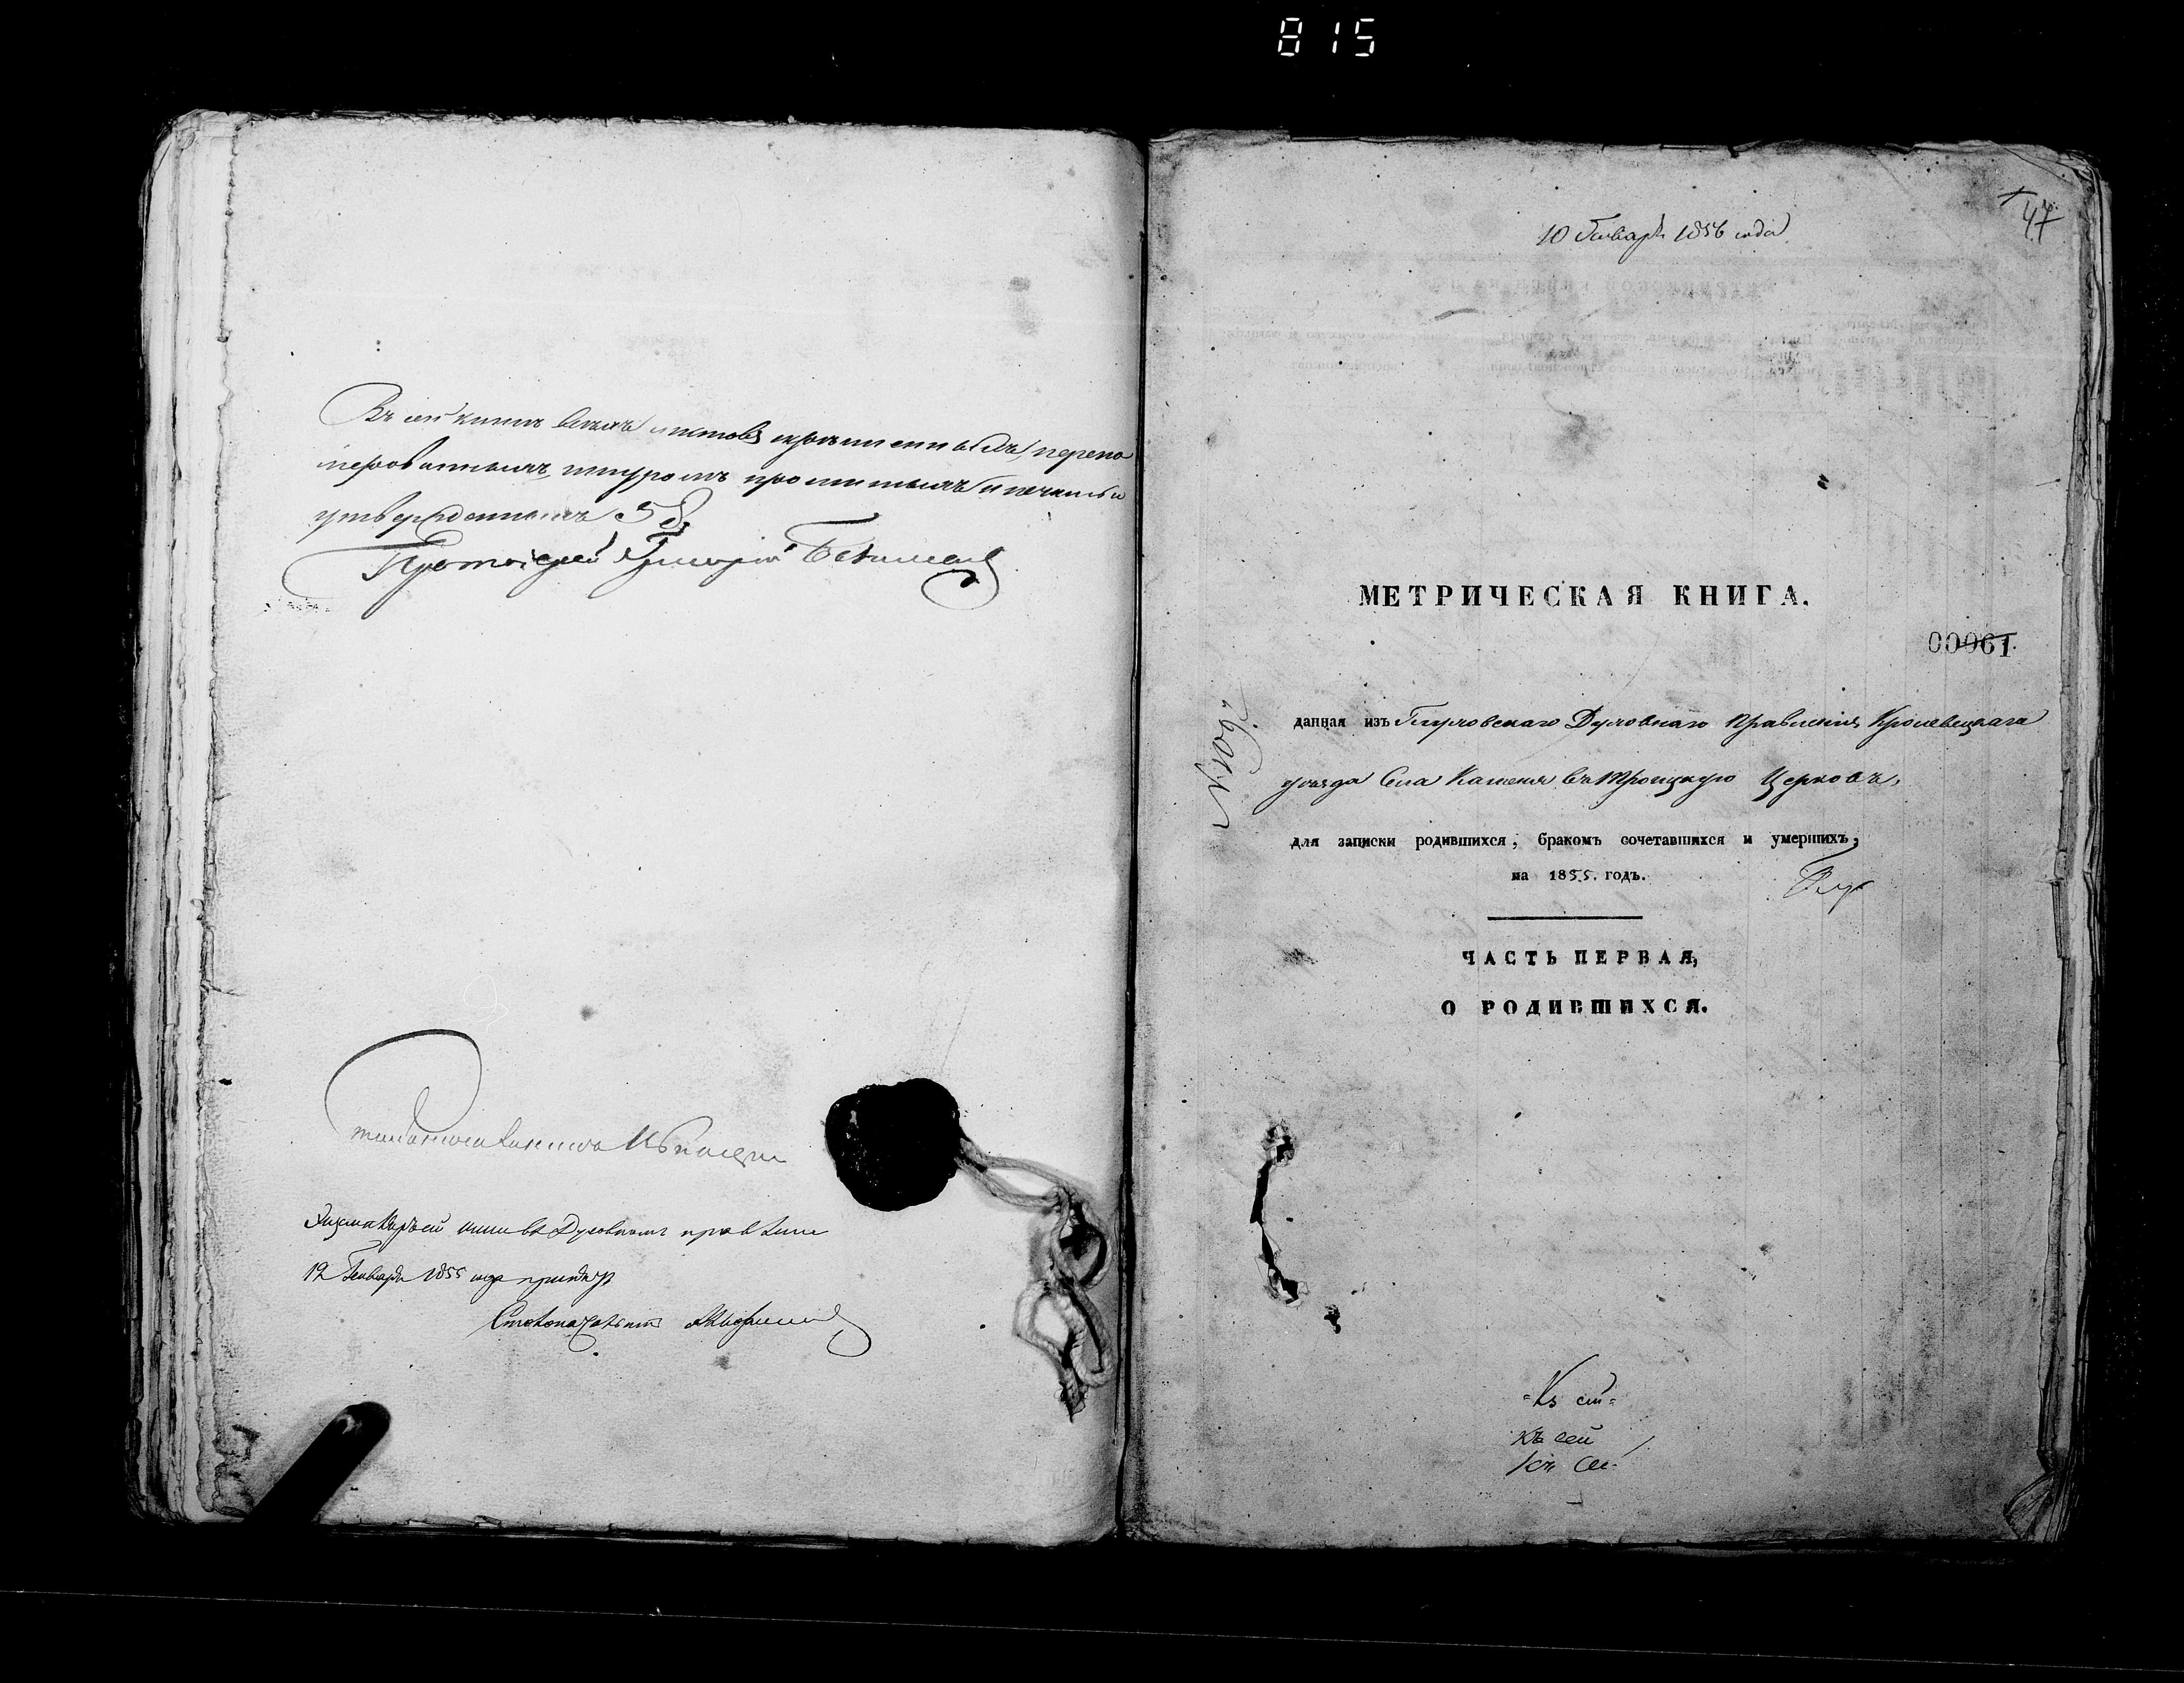 815
Въ сей книгѣ всѣхъ листовъ скрѣпленныхъ, перено
мерованныхъ, шнуромъ прошитыхъ и печатью
утвержденныхъ 58
Протоіерей Григорій
книги въ Духовномъ
12 Генваря 1855 года
Столоначальникъ
47
10 Генваря 1856 года
МЕТРИЧЕСКАЯ КНИГА.
00061
№ 109.
данная изъ Глуховскаго Духовнаго Правленія Кролевецкаго
уѣзда Села Каменя въ Троицкую Церковь,
для записки родившихся, бракомъ сочетавшихся и умершихъ,
на 1855. годъ.
ЧАСТЬ ПЕРВАЯ,
О РОДИВШИХСЯ.
къ сей